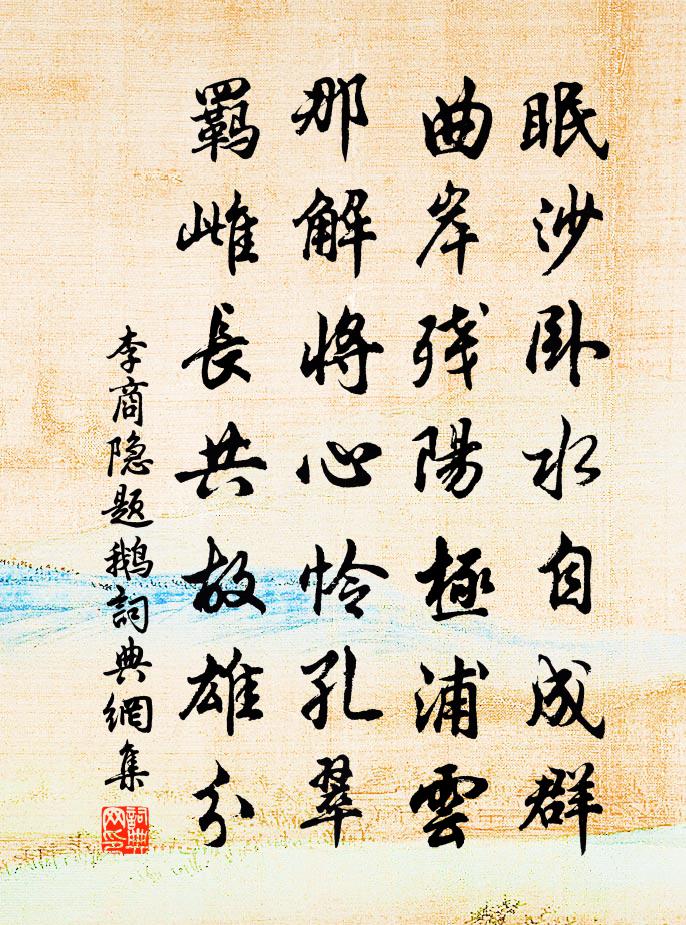 眠沙卧水自成群
曲岸残陽極浦雲
那解将心怜孔翠
羈雌長共故雄分
李商隐题鵝詞典網集
詞典网印